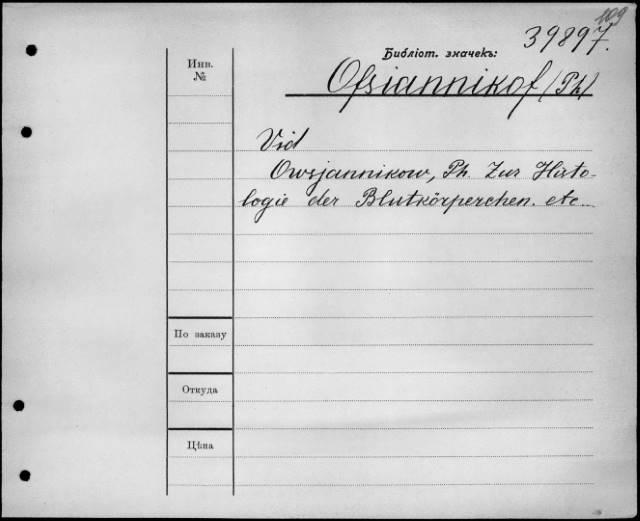 109
39897.
Библіот. значекъ:
Инв.
№
Ofsiannikof (Ph)
Vid
Owsjannikow, Ph. Zur Histo-
logie der Blutkörperchen. etc.
По заказу
Откуда
Цѣна